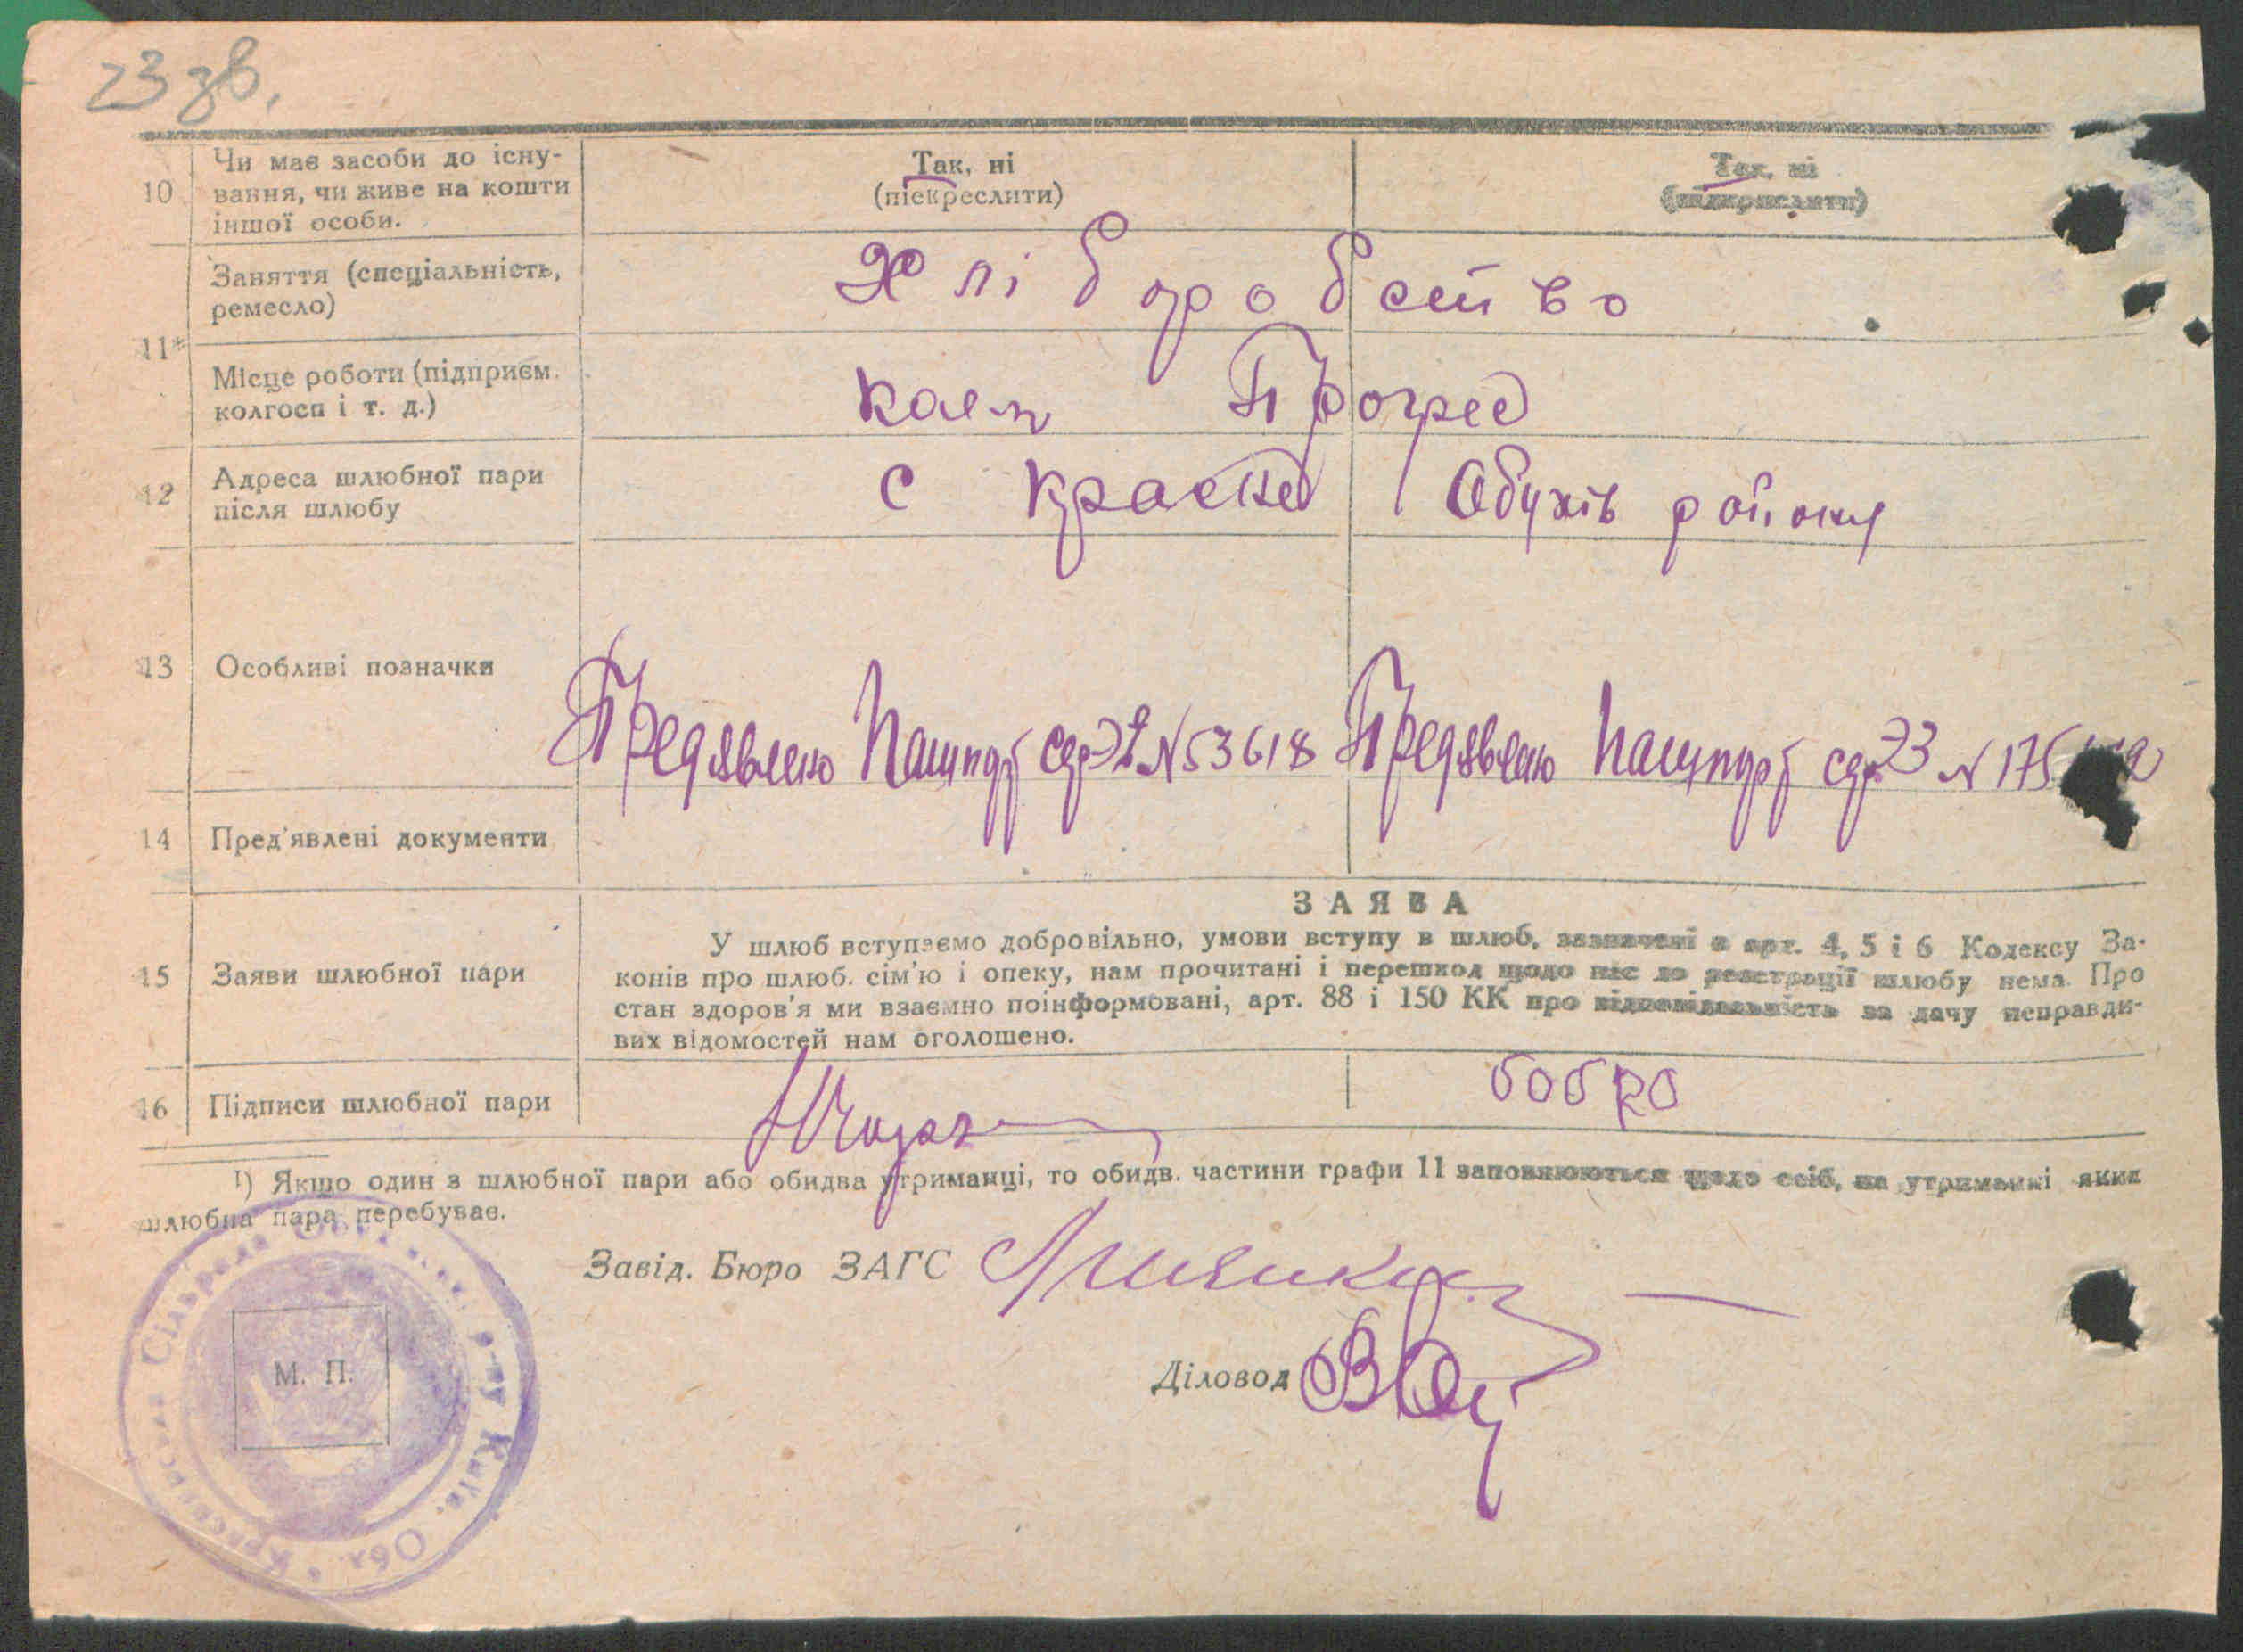 23 зв.
10 Чи має засоби до існу-
вання, чи живе на кошти
іншої особи.
Так, ні
(піекреслити)
Так, ні
(підкреслити)
11*
Заняття (спеціальність,
ремесло)
Хліборобство
Місце роботи (підприєм.
колгосп і т. д.)
Прогрес
12 Адреса шлюбної пари
після шлюбу
с Красне Обухів району
13 Особливі позначки
Предявлено Пашпорт сэр №53618
Предявлено Пашпорт сэр №175
14 Пред'явлені документи
15 Заяви шлюбної пари
ЗАЯВА
У шлюб вступаємо добровільно, умови вступу в шлюб, зазначені в арт. 4, 5 і 6 Кодексу За-
конів про шлюб. сім'ю і опеку, нам прочитані і перешкод щодо нас до реєстрації шлюбу нема. Про
стан здоров'я ми взаємно поінформовані, арт. 88 і 150 КК про відповідальність за дачу неправди-
вих відомостей нам оголошено.
16 Підписи шлюбної пари
бобко
1) Якщо один з шлюбної пари або обидва утриманці, то обидв. частини графи 11 заповнюються щодо осіб, на утриманні яких
шлюбна пара перебуває.
Завід. Бюро ЗАГС
Діловод
М. П.
Сільрада р-ну Київ. Обл.